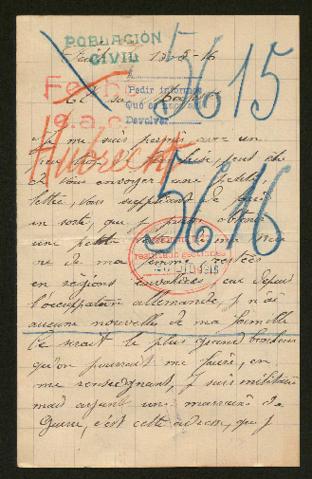 POBLACIÓN
CIVIL
5615
Pedir informes
Devolver
Hubrecht
5616
Je me suis permis avec un
peu
de vous envoyer une petite
lettre, vous suppliant de faire
en sorte, que je puisse obtenir
une petite
de ma femme restée
en régions envahies car depuis
l'occupation allemande, j n'ai
aucune nouvelle de ma famille
Ce serait le plus grand bonheur
qu'on pourrait me faire, en
me renseignant, j suis militaire
mais ayant une marraine de
Guerre, c'est cette adresse, que j